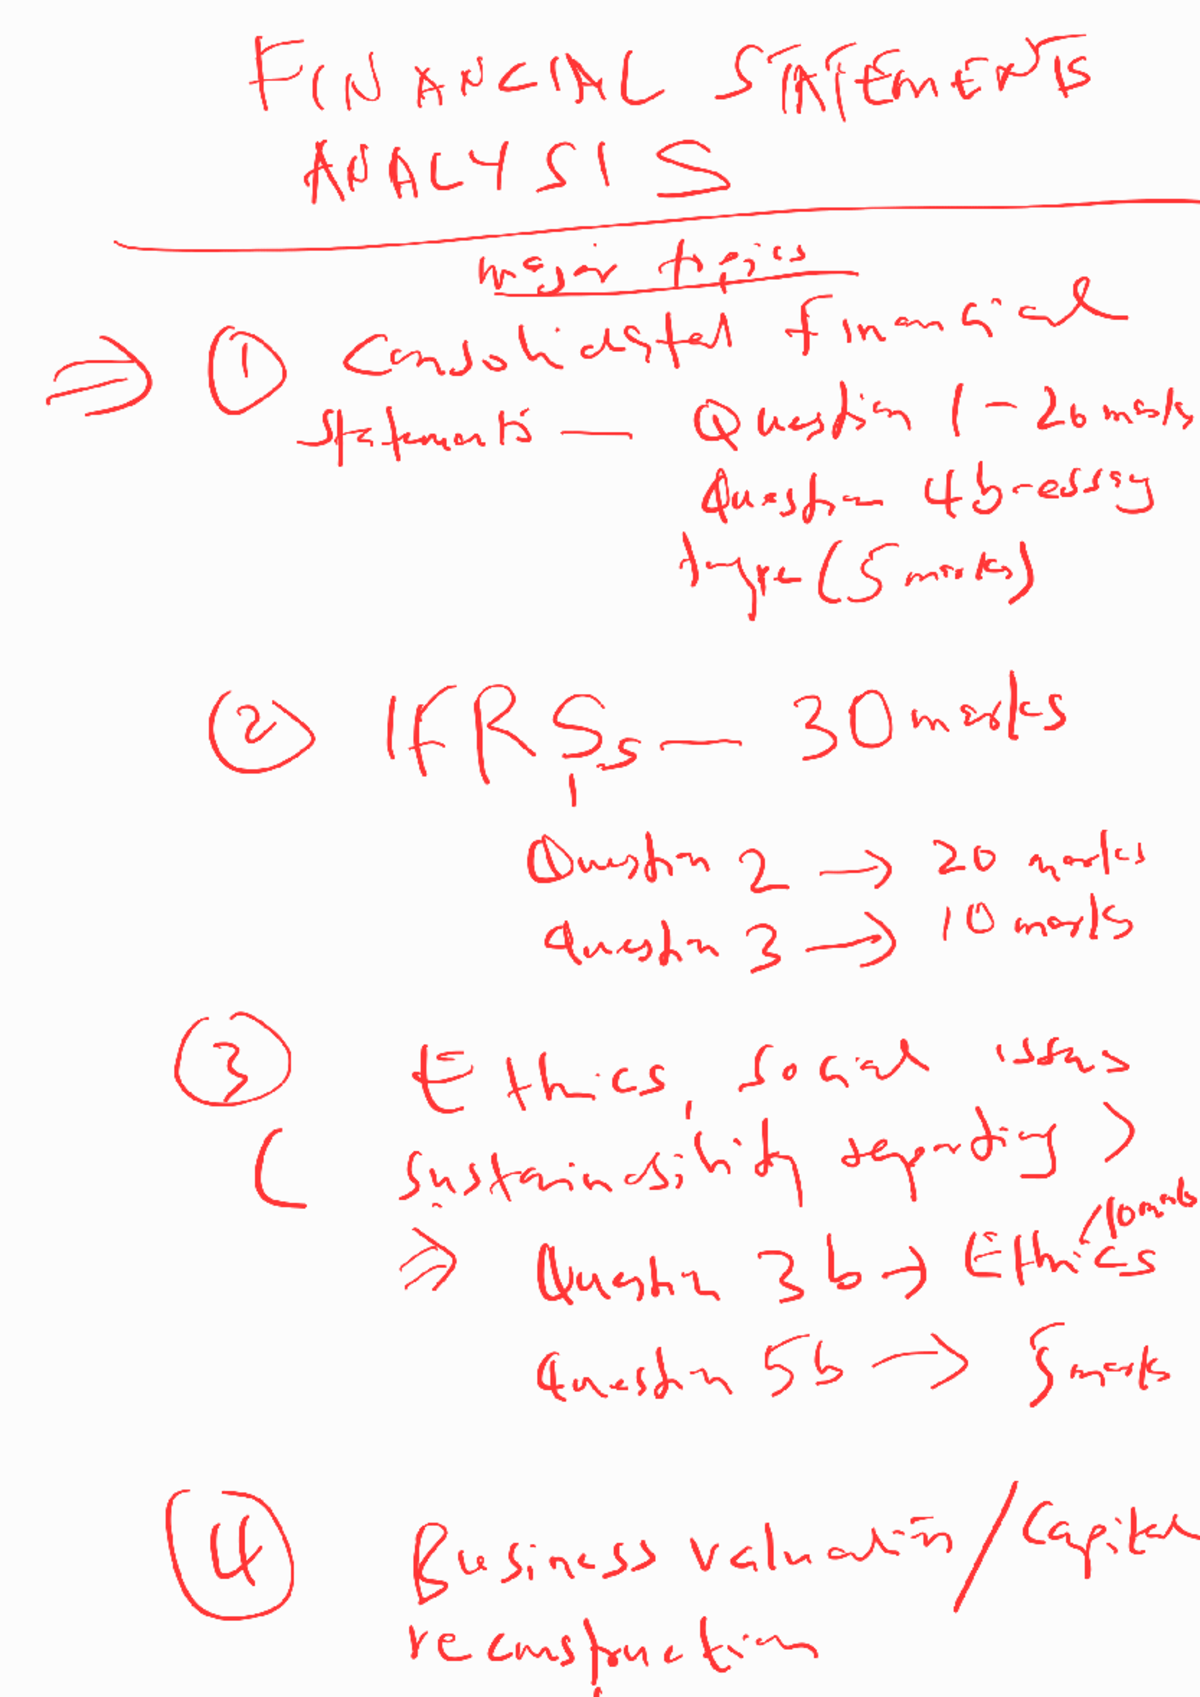 FINANCIAL STATEMENTS
ANALYSIS
major topics
⇒ ① Consolidated financial
statements — Question 1 – 20 marks
Question 4b – essay
type (5 marks)
② IFRSs — 30 marks
Question 2 → 20 marks
Question 3 → 10 marks
③ Ethics, social issues
( sustainability reporting )
/10 marks
⇒ Question 3b → Ethics
Question 5b → 5 marks
④ Business valuation / Capital
reconstruction